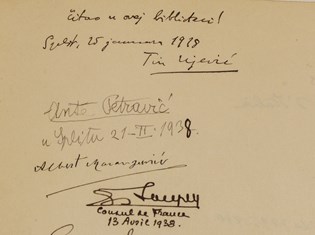 Čitao u ovoj biblioteci!
Split, 25 januara 1938
Tin Ujević
Ante Petravić
u Splitu 21-II-1938.
Albert
Consul de France
13 Avril 1938.